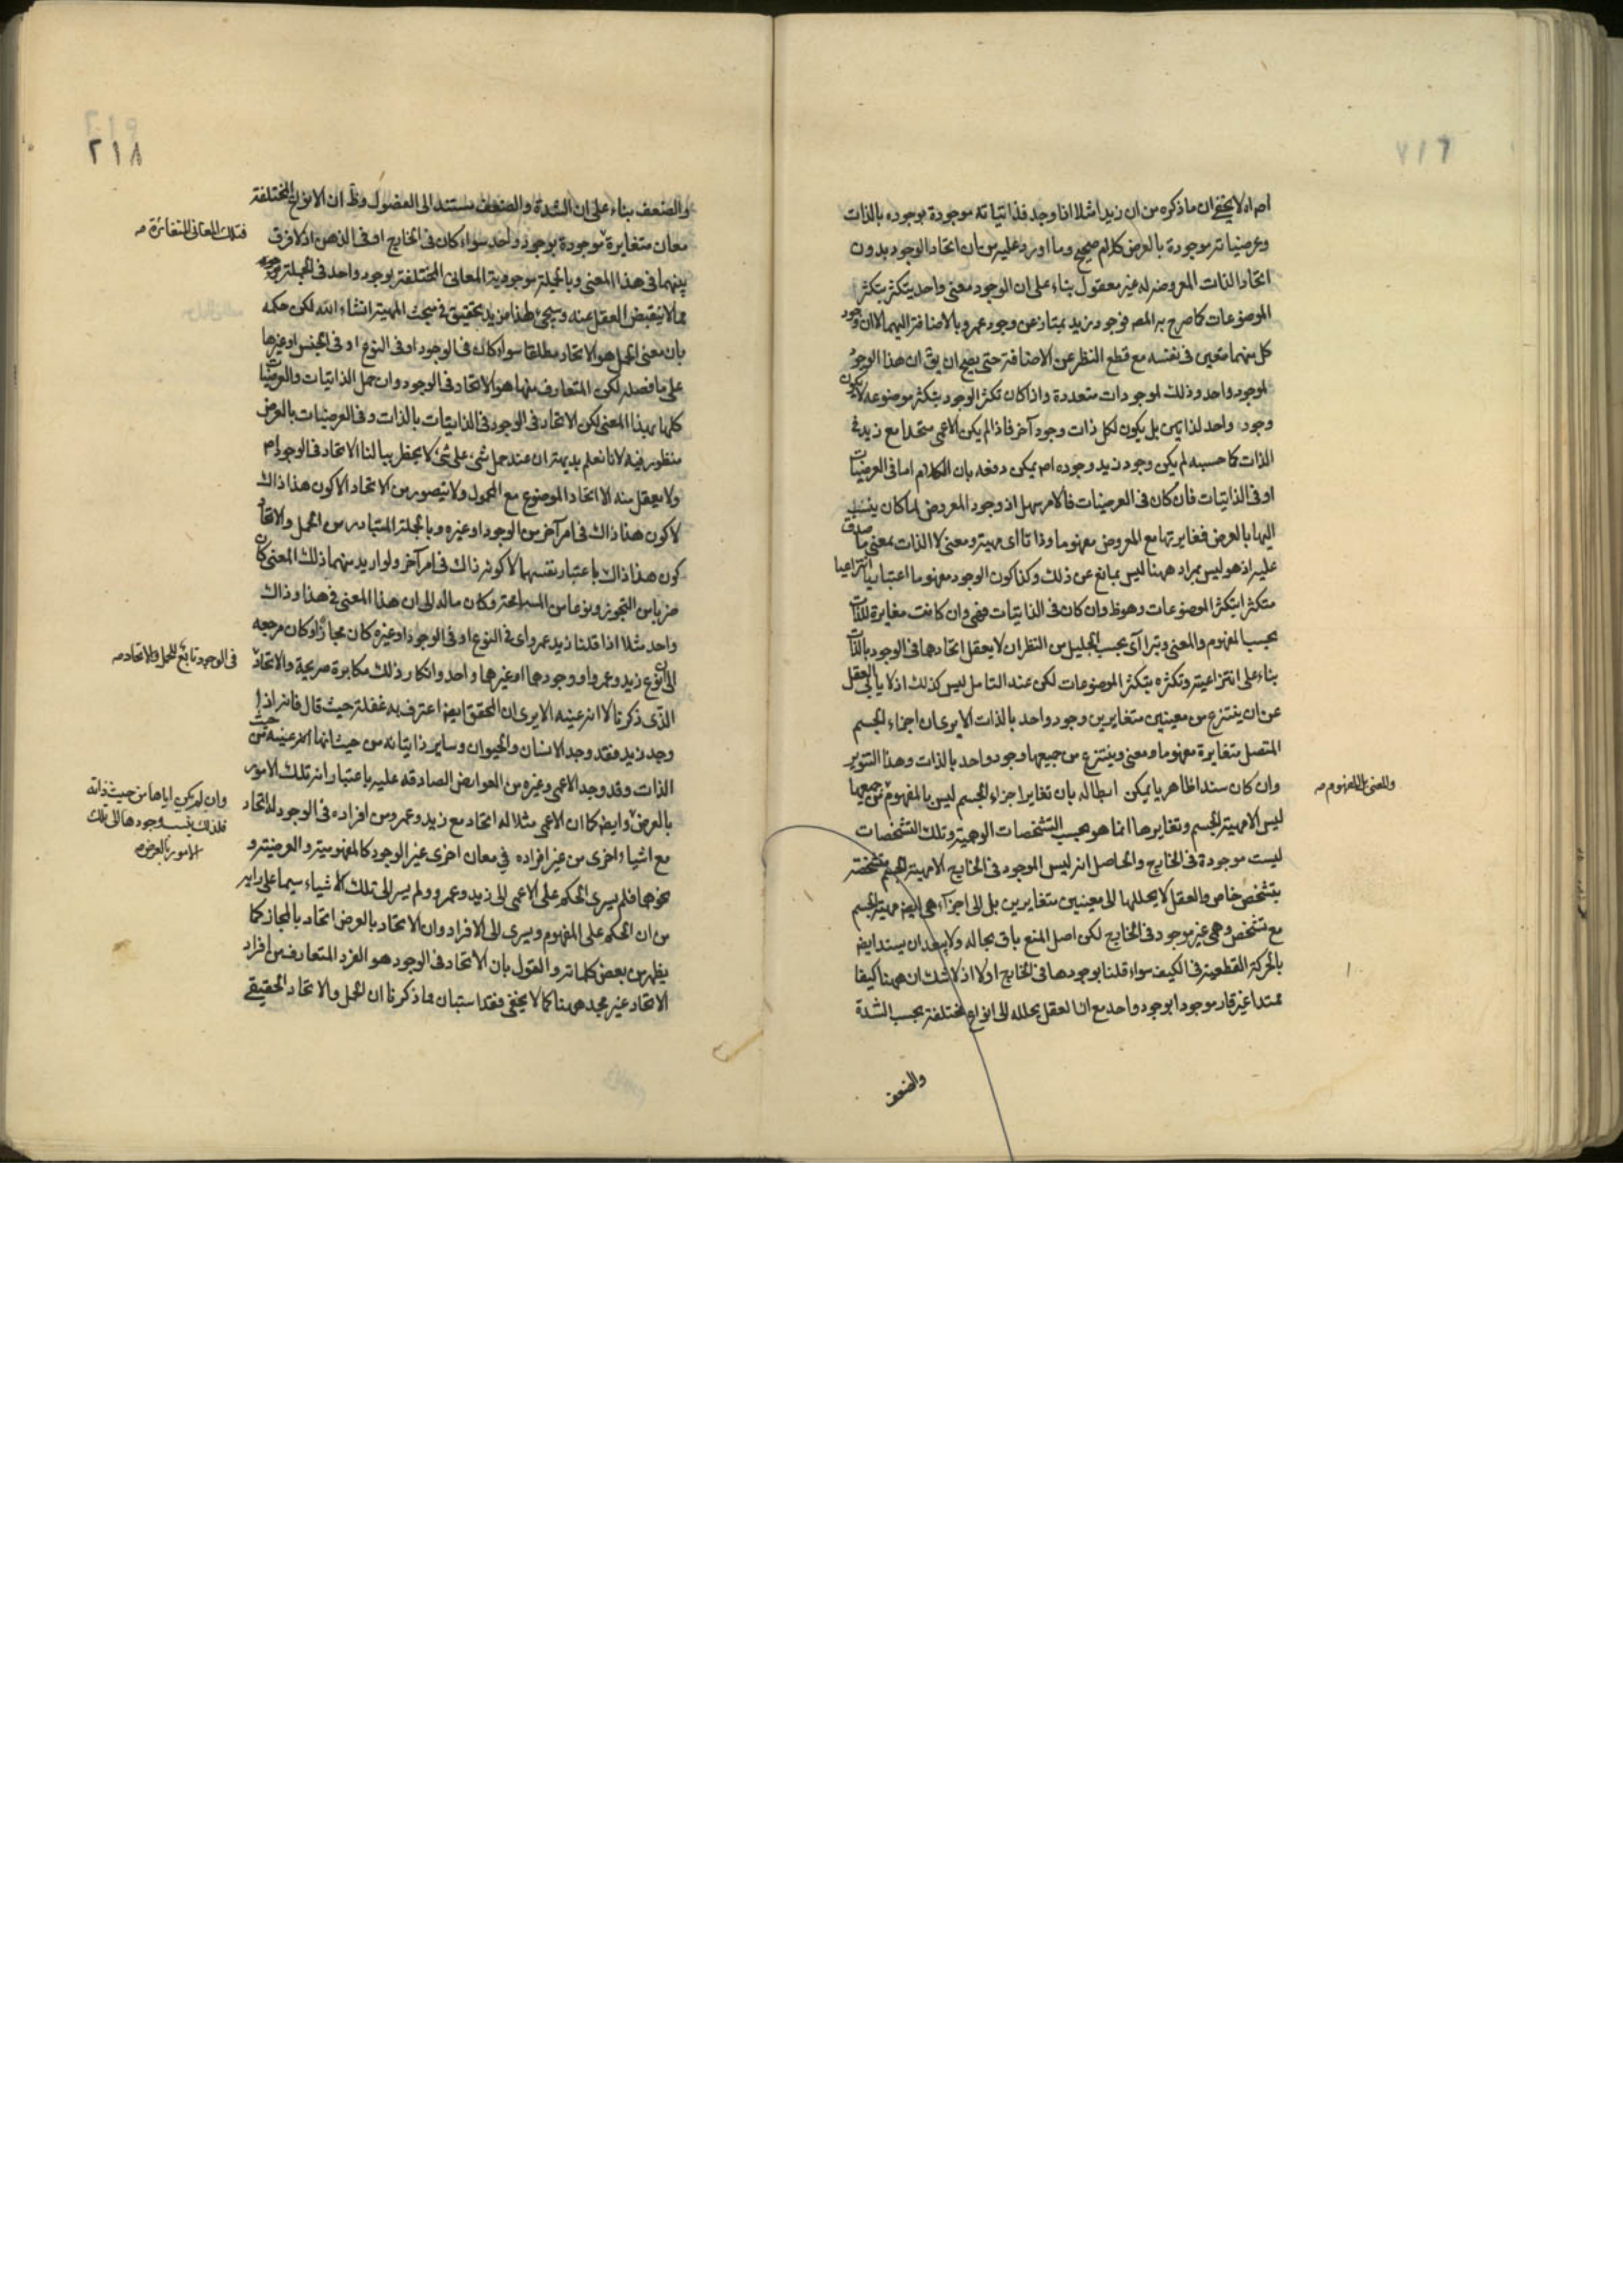 ٢١٧
اه ولا يخفى ان ما ذكره من ان زيدا مثلا اذا وجد فذاتياته موجودة بوجوده بالذات
وعرضياته موجودة بالعرض كلام صحيح وما اورد عليه من ان اتحاد الوجود بدون
اتحاد الذات المعروضه له غير معقول بناء على ان الوجود معنى واحد يتكثر بتكثر
الموضوعات كما صرح به المصر فوجود زيد يمتاز عن وجود عمرو بالاضافة اليهما لا ان وجود
كل منهما متعين فى نفسه مع قطع النظر عن الاضافة حتى يصح ان يق ان هذا الوجود
لموجود واحد وذلك لموجودات متعددة واذا كان تكثر الوجود بتكثر موضوعه لا يكون
وجود واحد لذاتين بل يكون لكل ذات وجود آخر فاذا لم يكن الاعمى متحدا مع زيد فى
الذات كما حسبه لم يكن وجود زيد وجوده اه يمكن دفعه بان الكلام اما فى العرضيات
او فى الذاتيات فان كان فى العرضيات فالامر سهل اذ وجود المعروض لما كان ينسب
اليها بالعرض فمغايرتها مع المعروض مفهوما وذاتا اى مهية ومعنى لا الذات بمعنى ما صدق
عليه اذ هو ليس بمراد ههنا ليس بمانع عن ذلك وكذا كون الوجود مفهوما اعتباريا انتزاعيا
متكثرا بتكثر الموضوعات وهو ظ وان كان فى الذاتيات فهى وان كانت مغايرة للذات
بحسب المفهوم والمعنى ويترا آى بحسب الجليل من النظر ان لا يعقل اتحادهما فى الوجود بالذات
بناء على انتزاعيته وتكثره بتكثر الموضوعات لكن عند التامل ليس كذلك اذ لا يابى العقل
عن ان ينتزع من معنيين متغايرين وجود واحد بالذات الا يرى ان اجزاء الجسم
المتصل متغايرة مفهوما ومعنى وينتزع من جميعها وجود واحد بالذات وهذا التنوير
وان كان سندا ظاهريا يمكن ابطاله بان تغاير اجزاء الجسم ليس بالمفهوم من جميعها
والمعنى اذ المفهوم صه
ليس الا مهية الجسم وتغايرها انما هو بحسب التشخصات الوهمية وتلك التشخصات
ليست موجودة فى الخارج والحاصل انه ليس الموجود فى الخارج الا مهية الجسم متشخصة
بتشخص خاص والعقل لا يحللها الى معنيين متغايرين بل الى اجزآء هى ايض مهية الجسم
مع تشخص وهى غير موجود فى الخارج لكن اصل المنع باق بحاله ولا يبعد ان يسند ايض
بالحركة القطعية فى الكيف سواء قلنا بوجودها فى الخارج اولا اذ لا شك ان ههنا كيفا
ممتدا غير قار موجودا بوجود واحد مع ان العقل يحلله الى انواع مختلفة بحسب الشدة
والضعف
٢١٨
والضعف بناء على ان الشدة والضعف مستند الى الفصول وظ ان الانواع المختلفة
معان متغايرة موجودة بوجود واحد سواء كان فى الخارج او فى الذهن اذ لا فرق
فتلك المعانى المتغائرة صه
بينهما فى هذا المعنى وبالجملة موجودية المعانى المختلفة بوجود واحد فى الجملة
مما لا ينقبض العقل عنه وسيجئ لهذا مزيد تحقيق فى مبحث المهية انشاء الله لكن حكمه
بان معنى الحمل هو الاتحاد مطلقا سواء كان فى الوجود او فى النوع او فى الجنس او غيرها
على ما فصله لكن المتعارف منها هو الاتحاد فى الوجود وان حمل الذاتيات والعرضيات
كلها بهذا المعنى لكن الاتحاد فى الوجود فى الذاتيات بالذات وفى العرضيات بالعرض
منظور فيه لانا نعلم بديهة ان عند حمل شىء على شىء لا يخطر ببالنا الاتحاد فى الوجود اه
ولا يعقل منه الا اتحاد الموضوع مع المحمول ولا يتصور من الاتحاد الا كون هذا ذاك
لا كون هذا ذاك فى امر آخر من الوجود او غيره وبالجملة المتبادر من الحمل والاتحاد
كون هذا ذاك باعتبار نفسهما لا كونه ذاك فى امر آخر ولو اريد منهما ذلك المعنى كان
ضربا من التجوز ونوعا من المسامحة وكان ماله الى ان هذا المعنى فى هذا وذاك
واحد مثلا اذا قلنا زيد عمرو اى فى النوع او فى الوجود او غيره كان مجازا وكان مرجعه
الى ان نوع زيد وعمرو او وجودهما او غيرهما واحد وانكار ذلك مكابرة صريحة والاتحاد
فى الوجود تابع للحمل والاتحاد صه
الذى ذكرنا لا انه عينه الا يرى ان المحقق ايض اعترف به غفلة حيث قال فانه اذا
وجد زيد فقد وجد الانسان والحيوان وساير ذاتياته من حيث انها عينه من حيث
الذات وقد وجد الاعمى وغيره من العوارض الصادقه عليه باعتبار انه تلك الامور
بالعرض وايض كما ان الاعمى مثلا له اتحاد مع زيد وعمرو من افراده فى الوجود له اتحاد
وان لم يكن اياها من حيث ذاته
فلذلك ينسب وجودها الى تلك
الامور بالعرض صه
مع اشياء اخرى من غير افراده فى معان اخرى غير الوجود كالمفهومية والعرضية و
نحوهما فلم يسرى الحكم على الاعمى الى زيد وعمرو ولم يسر الى تلك الاشياء سيما على رايه
من ان الحكم على المفهوم ويسرى الى الافراد وان الاتحاد بالعرض اتحاد بالمجاز كما
يظهر من بعض كلماته والقول بان الاتحاد فى الوجود هو الفرد المتعارف من افراد
الاتحاد غير مجد ههنا كما لا يخفى فقد استبان مما ذكرنا ان الحمل والاتحاد الحقيقى